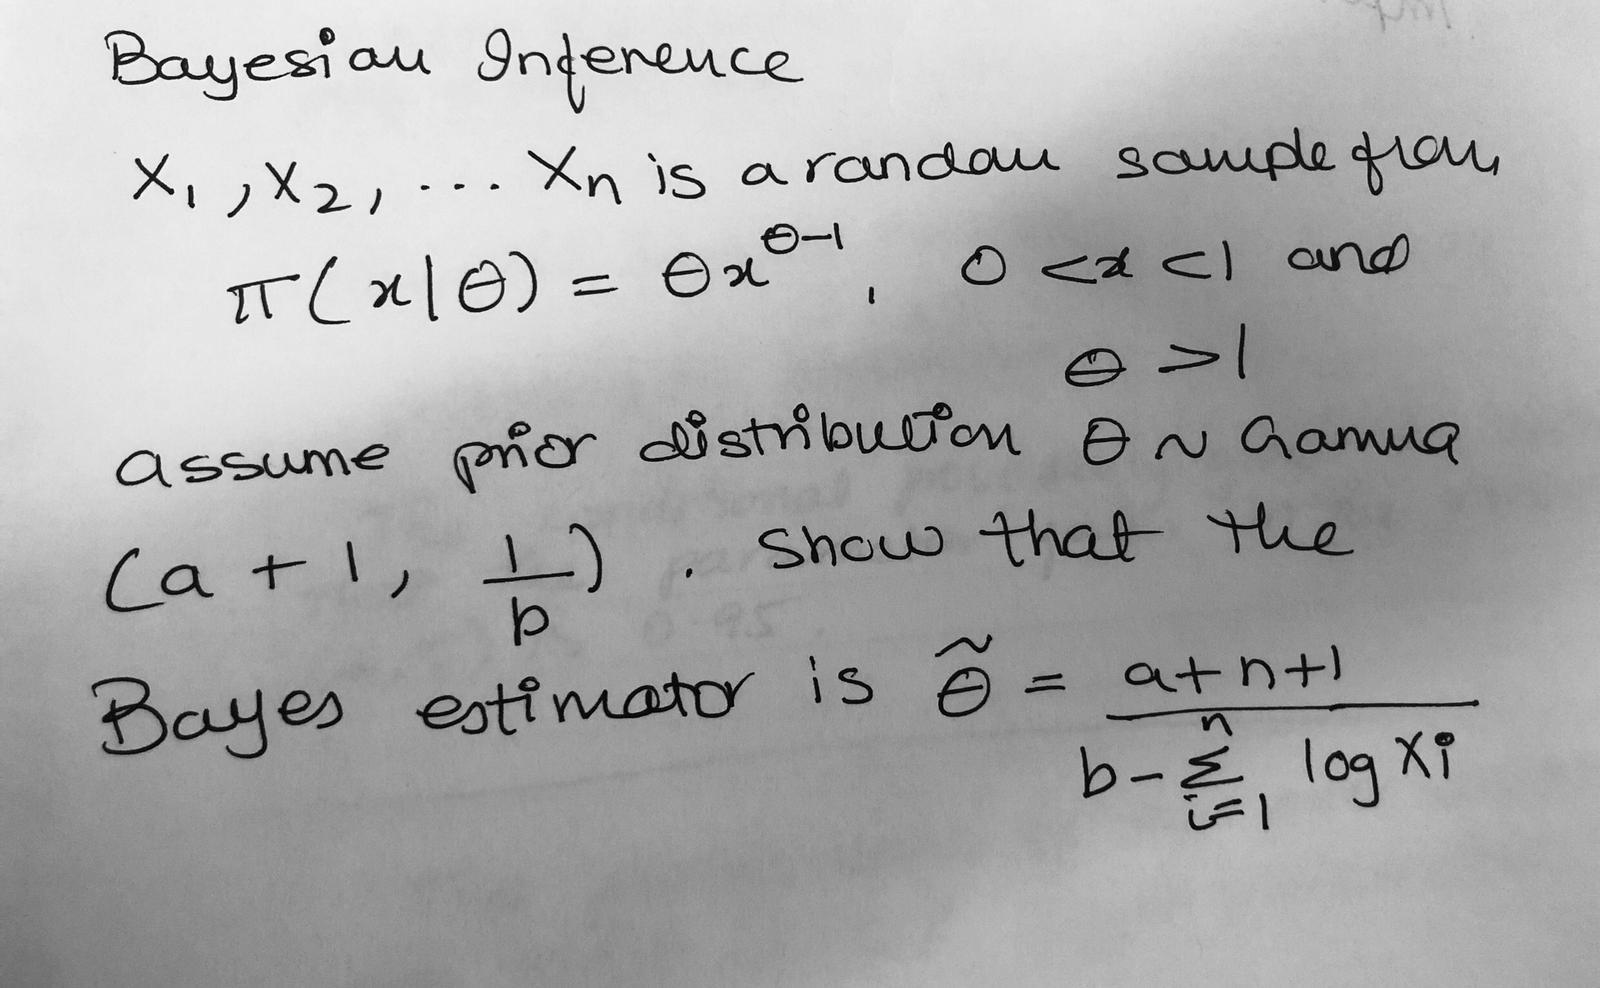 Bayesian Inference
X₁, X₂, ... Xn is a random sample from
π(x|θ) = θx^(θ-1), 0 < x < 1 and
θ > 1
assume prior distribution θ ~ Gamma
(a + 1, 1/b). Show that the
Bayes estimator is θ̃ = (a+n+1)/(b - Σ_{i=1}^{n} log Xi)